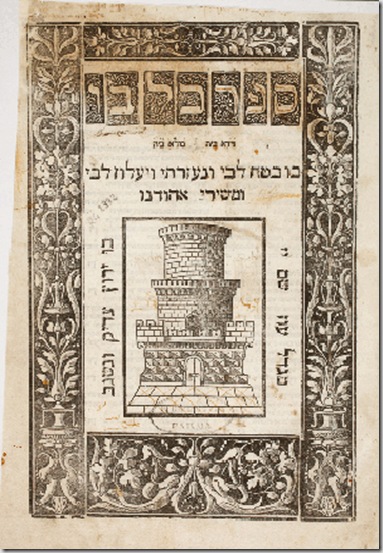 ספר כל בו
דדא ביה כולא ביה
בו בטח לבי ונעזרתי ויעלוז לבי
ומשירי אהודנו
מגדל עוז שם יי
בו ירוץ צדיק ונשגב